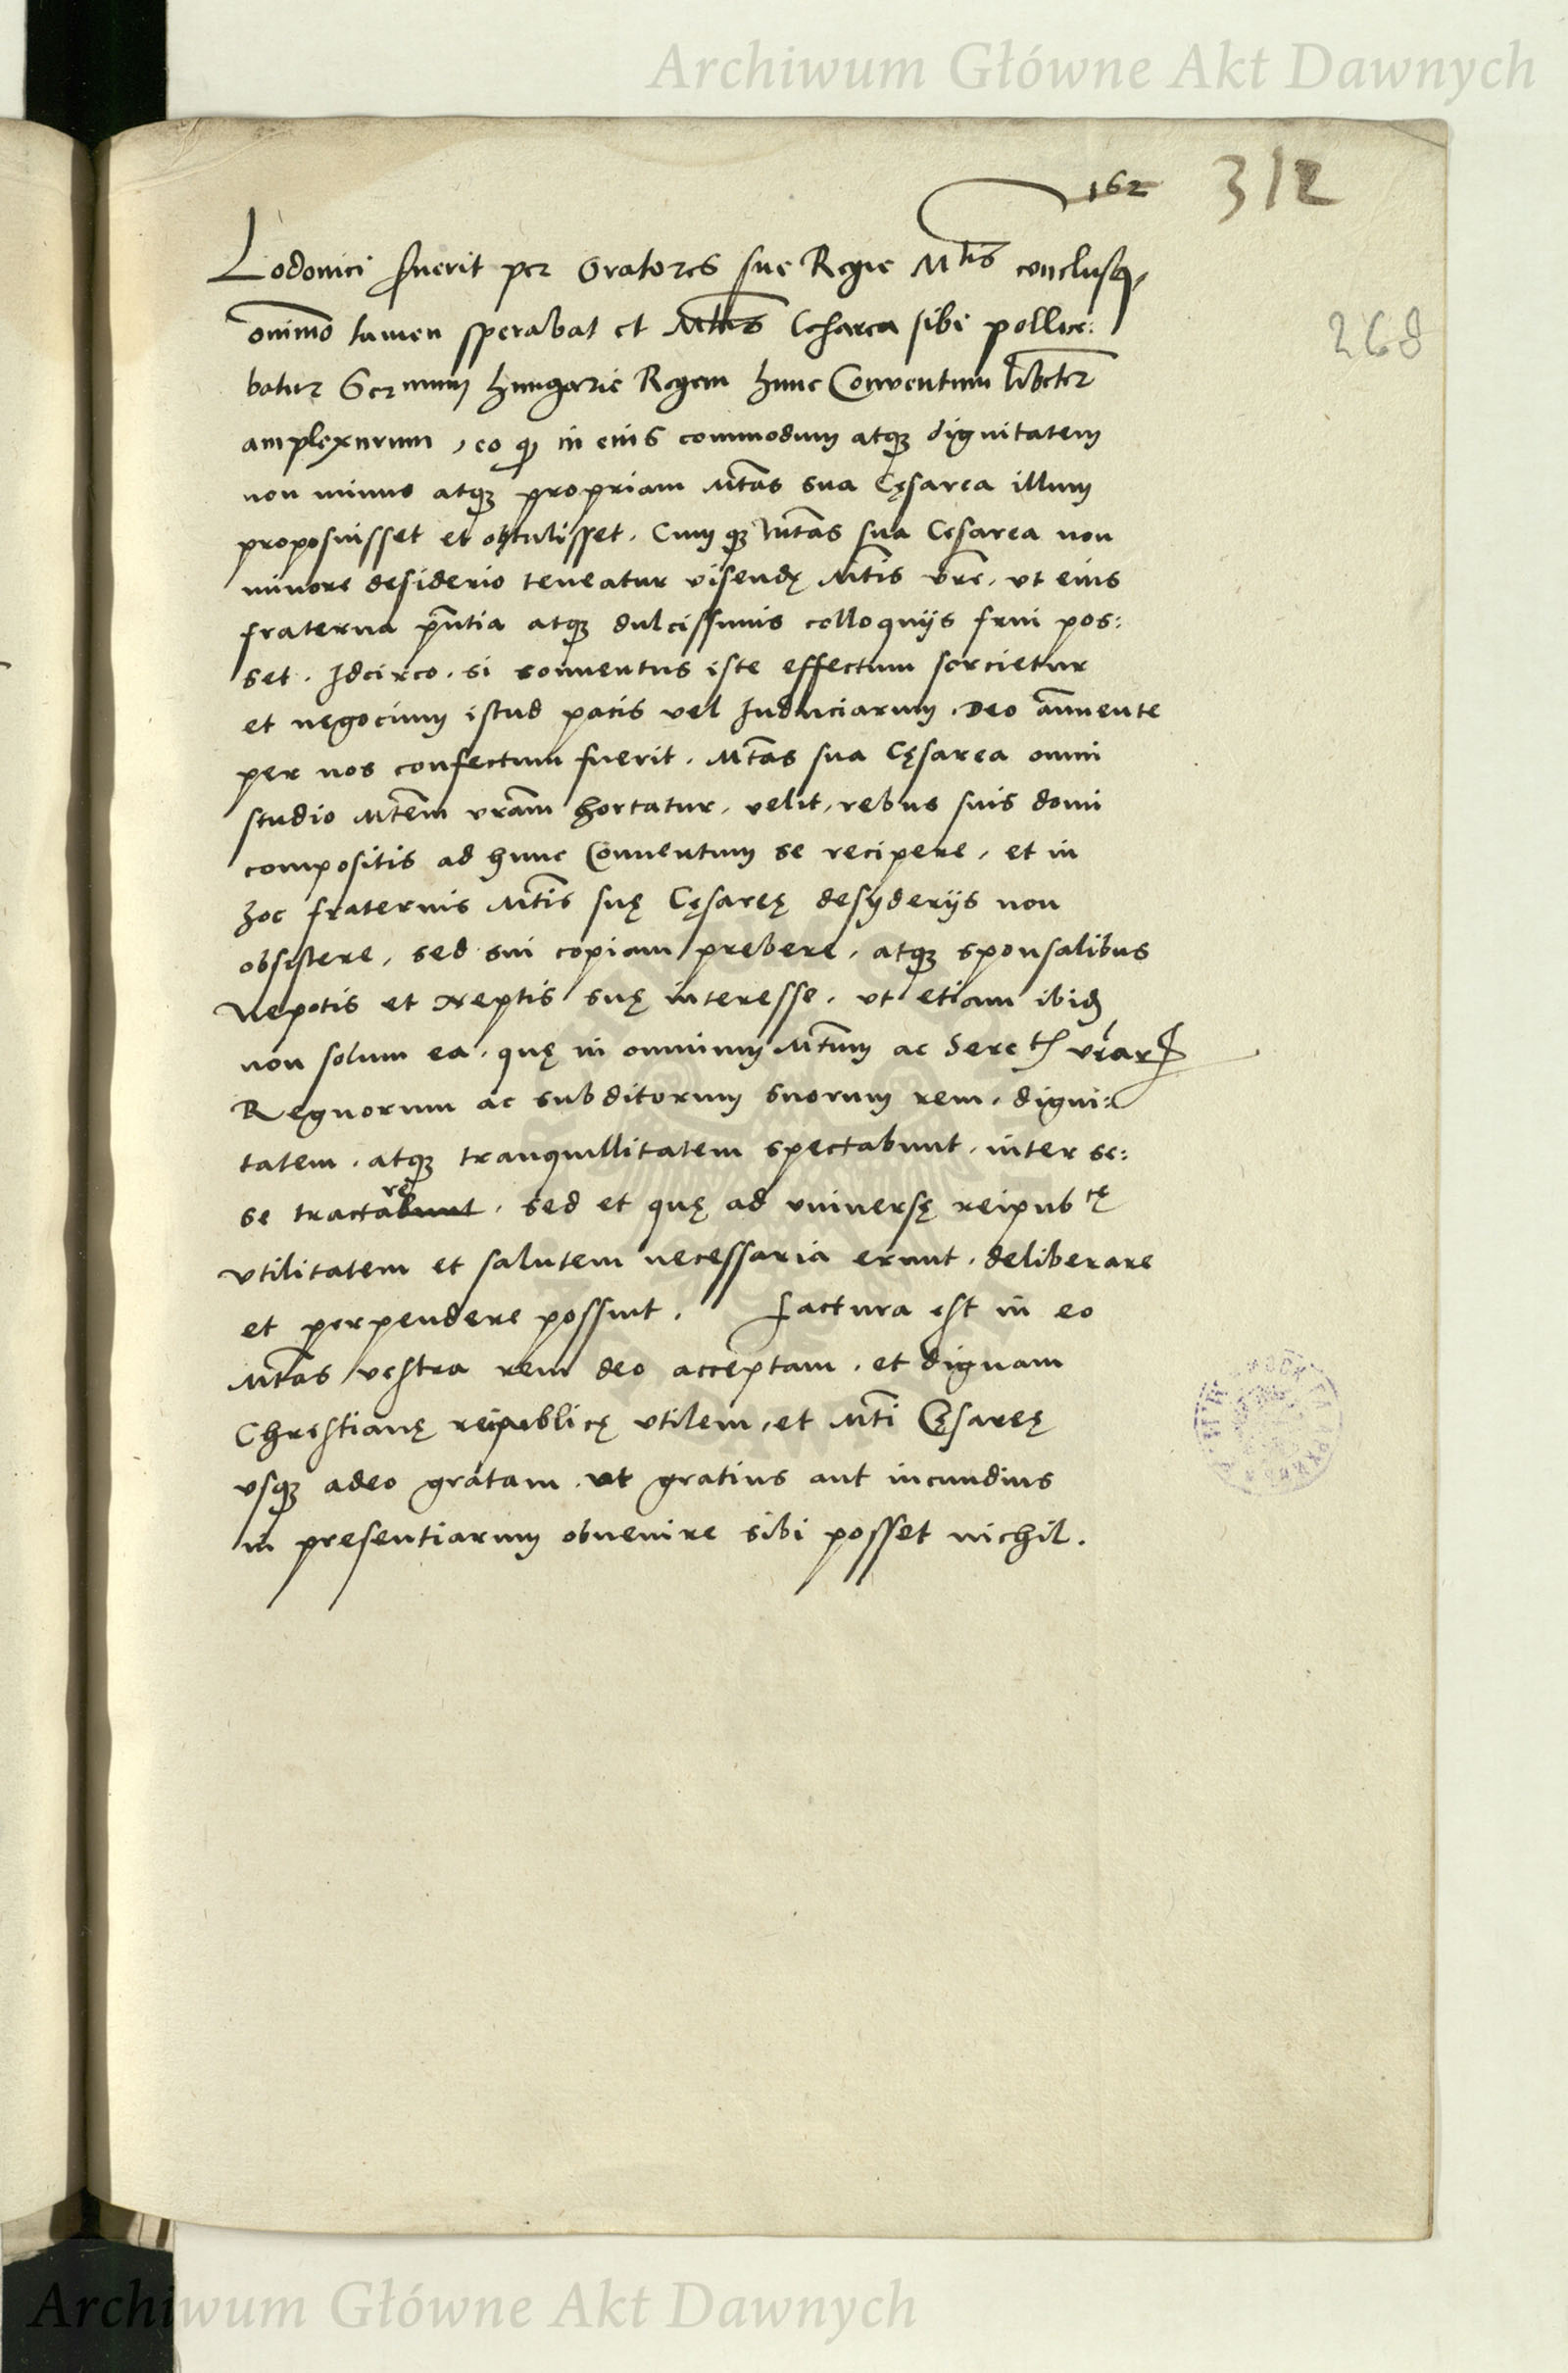 Archiwum Główne Akt Dawnych
162 312
Lodovici fuerit per Oratores sue Regie Mtis conclusū,
omnino tamen sperabat et Mtas Cesarea sibi pollice:
batur Sermum Hungarie Regem hunc Conventum libenter
268
amplexurum, eo qp in eius commodum atqz dignitatem
non minus atqz propriam Mtas sua Cęsarea illum
proposuisset et obtulisset. Cum qz Mtas sua Cesarea non
minore desiderio teneatur visendę Mtis vrē. ut eius
fraterna pñtia atqz dulcissimis colloquijs frui pos:
set. Idcirco. si conventus iste effectum sorcietur
et negocium istud pacis vel Induciarum. Deo annuente
per nos confectum fuerit. Mtas sua Cęsarea omni
studio Mtem vram hortatur, velit, rebus suis domi
compositis ad hunc Conventum se recipere, et in
hoc fraternis Mtis suę Cęsareę desyderijs non
obsistere, sed sui copiam prebere, atqz sponsalibus
Nepotis et Neptis suę interesse. ut etiam ibid
non solum ea. quę in omnium Mtum ac Seretum vrar
Regnorum ac subditorum suorum rem, digni:
tatem. atqz tranquillitatem spectabunt. inter se:
se tractabunt re. sed et quę ad universę reipubcę
utilitatem et salutem necessaria erunt. deliberare
et perpendere possint. Factura est in eo
Mtas vestra rem deo acceptam. et dignam
Christianę reipublicę utilem, et Mti Cęsareę
usqz adeo gratam. ut gratius aut iucundius
in presentiarum obvenire sibi posset nichil.
Archiwum Główne Akt Dawnych